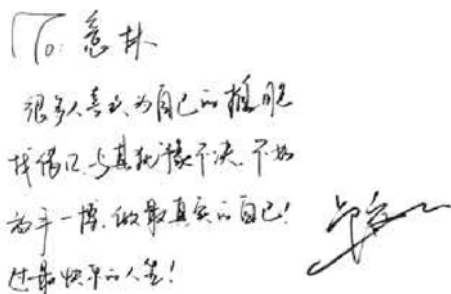 To: 意林
很多人喜欢为自己的推脱
找借口,与其犹豫不决,不如
放手一搏,做最真实的自己!
过最快乐的人生!